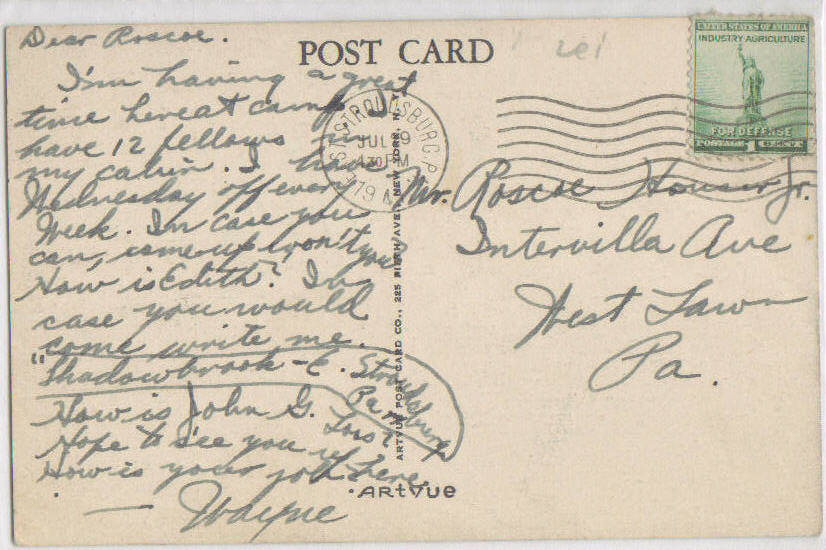 Dear Roscoe.
POST CARD
I'm having a great
time here at camp
have 12 fellows in
my cabin. I have
Wednesday off every
Week. In case you
can, come up won't you?
How is Edith? In
case you would
come write me.
"Shadowbrook - E. Stroudsburg
Pa."
How is John G. Lois?
Hope to see you up here.
How is your job
— Wayne
UNITED STATES OF AMERICA
INDUSTRY AGRICULTURE
FOR DEFENSE
POSTAGE 1
E. STROUDSBURG, PA.
JUL 9
430 PM
19
Mr. Roscoe Houser Jr.
Intervilla Ave
West Lawn
Pa.
ARTVUE POST CARD CO., 225 FIFTH AVE., NEW YORK, N. Y.
ARTVUE